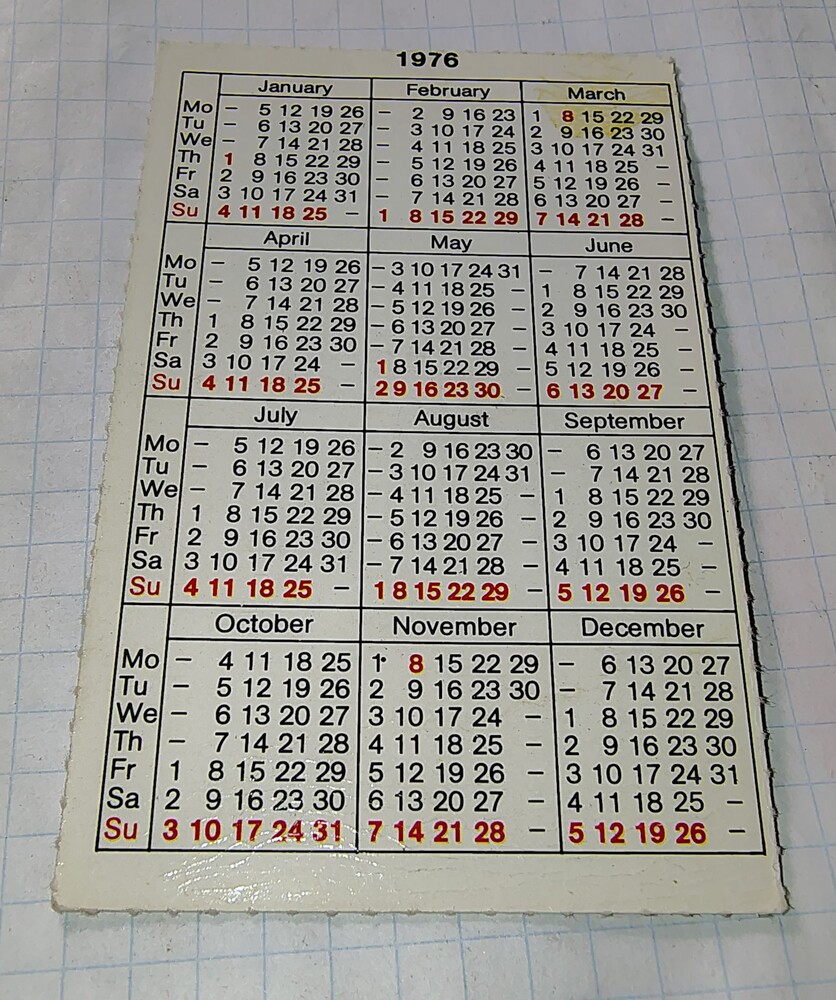 1976
January February March
Mo – 5 12 19 26 – 2 9 16 23 1 8 15 22 29
Tu – 6 13 20 27 – 3 10 17 24 2 9 16 23 30
We – 7 14 21 28 – 4 11 18 25 3 10 17 24 31
Th 1 8 15 22 29 – 5 12 19 26 4 11 18 25 –
Fr 2 9 16 23 30 – 6 13 20 27 5 12 19 26 –
Sa 3 10 17 24 31 – 7 14 21 28 6 13 20 27 –
Su 4 11 18 25 – 1 8 15 22 29 7 14 21 28 –
April May June
Mo – 5 12 19 26 – 3 10 17 24 31 – 7 14 21 28
Tu – 6 13 20 27 – 4 11 18 25 – 1 8 15 22 29
We – 7 14 21 28 – 5 12 19 26 – 2 9 16 23 30
Th 1 8 15 22 29 – 6 13 20 27 – 3 10 17 24 –
Fr 2 9 16 23 30 – 7 14 21 28 – 4 11 18 25 –
Sa 3 10 17 24 – 1 8 15 22 29 – 5 12 19 26 –
Su 4 11 18 25 – 2 9 16 23 30 – 6 13 20 27 –
July August September
Mo – 5 12 19 26 – 2 9 16 23 30 – 6 13 20 27
Tu – 6 13 20 27 – 3 10 17 24 31 – 7 14 21 28
We – 7 14 21 28 – 4 11 18 25 – 1 8 15 22 29
Th 1 8 15 22 29 – 5 12 19 26 – 2 9 16 23 30
Fr 2 9 16 23 30 – 6 13 20 27 – 3 10 17 24 –
Sa 3 10 17 24 31 – 7 14 21 28 – 4 11 18 25 –
Su 4 11 18 25 – 1 8 15 22 29 – 5 12 19 26 –
October November December
Mo – 4 11 18 25 1 8 15 22 29 – 6 13 20 27
Tu – 5 12 19 26 2 9 16 23 30 – 7 14 21 28
We – 6 13 20 27 3 10 17 24 – 1 8 15 22 29
Th – 7 14 21 28 4 11 18 25 – 2 9 16 23 30
Fr 1 8 15 22 29 5 12 19 26 – 3 10 17 24 31
Sa 2 9 16 23 30 6 13 20 27 – 4 11 18 25 –
Su 3 10 17 24 31 7 14 21 28 – 5 12 19 26 –